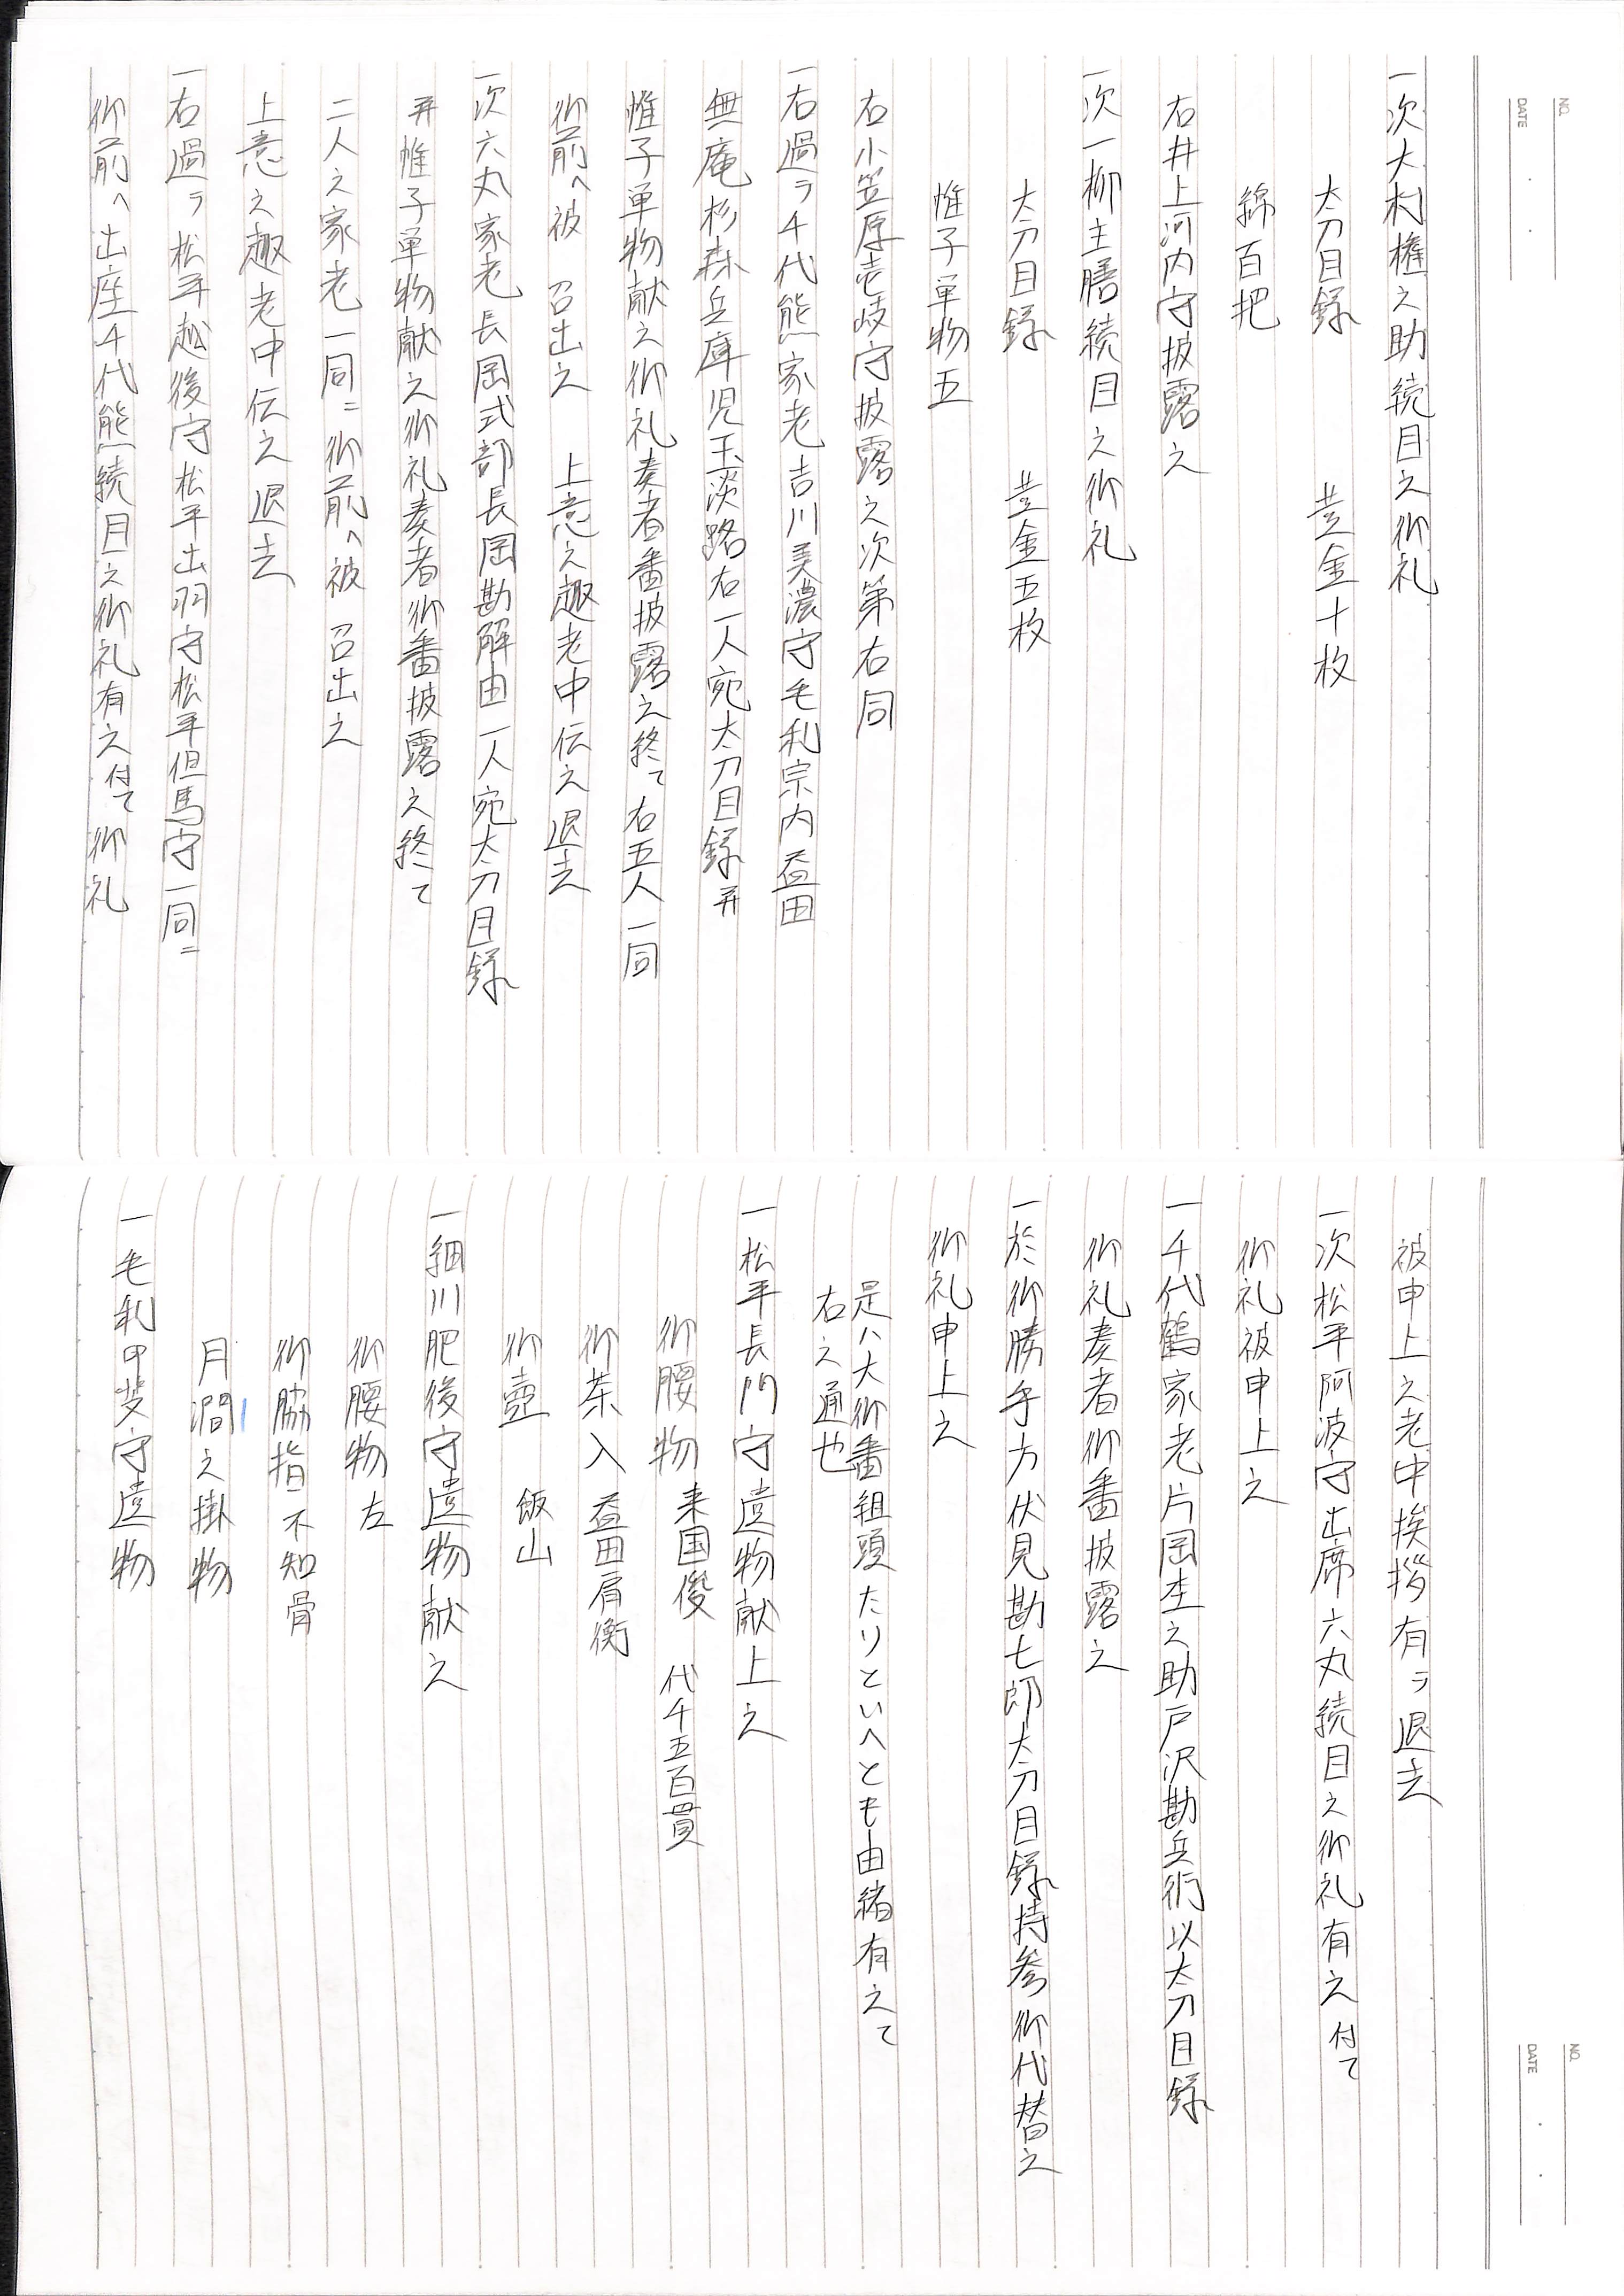 NO.
DATE
一次大村権之助続目之御礼
太刀目録　黄金十枚
綿百把
右井上河内守披露之
一次一柳主膳続目之御礼
太刀目録　黄金五枚
帷子単物五
右小笠原壱岐守披露之次第右同
一右過ヲ千代熊家老吉川美濃守毛利宗内益田
無庵杉森兵庫児玉淡路右一人宛太刀目録并
帷子単物献之御礼奏者番披露之終て右五人一同
御前ヘ被　召出之　上意之趣老中伝之退去
一次六丸家老長岡式部長岡勘解由一人宛太刀目録
并帷子単物献之御礼奏者御番披露之終て
二人之家老一同ニ御前ヘ被　召出之
上意之趣老中伝之退去
一右過ヲ松平越後守松平出羽守松平但馬守一同ニ
御前ヘ出座千代熊続目之御礼有之付て御礼
NO.
DATE
被申上之老中挨拶有ヲ退去
一次松平阿波守出席六丸続目之御礼有之付て
御礼被申上之
一千代鶴家老片岡杢之助戸沢勘兵衛以太刀目録
御礼奏者御番披露之
一於御勝手方伏見勘七郎太刀目録持参御代替之
御礼申上之
是ハ大御番組頭たりといへとも由緒有之て
右之通也
一松平長門守遺物献上之
御腰物　来国俊　代千五百貫
御茶入　益田肩衝
御壺　飯山
一細川肥後守遺物献之
御腰物　左
御脇指　不知骨
月澗之掛物
一毛利甲斐守遺物